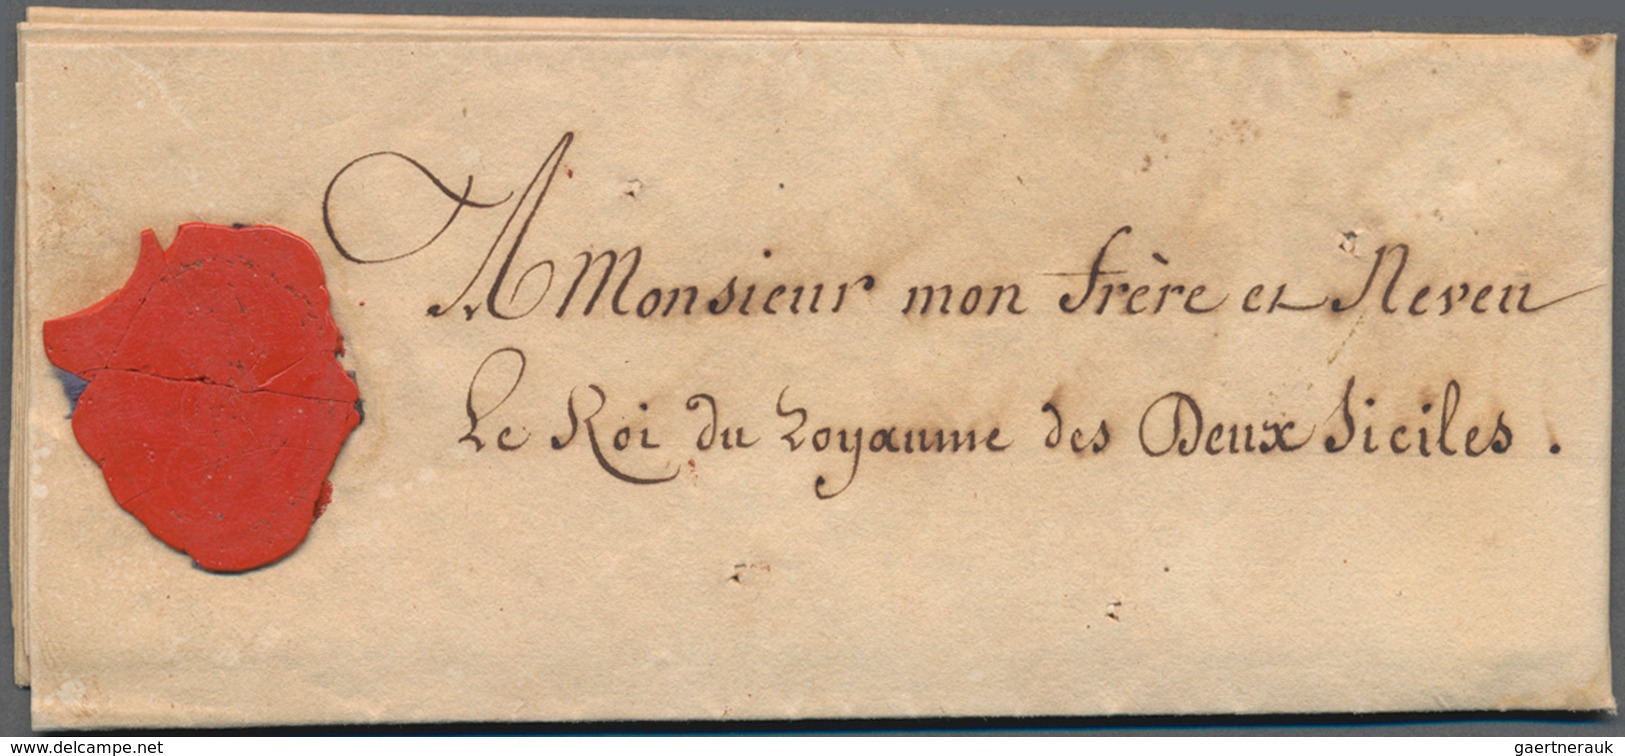 A Monsieur mon frère et Neveu
Le Roi du Royaume des Deux Siciles.
www.delcampe.net
gaertnerauk